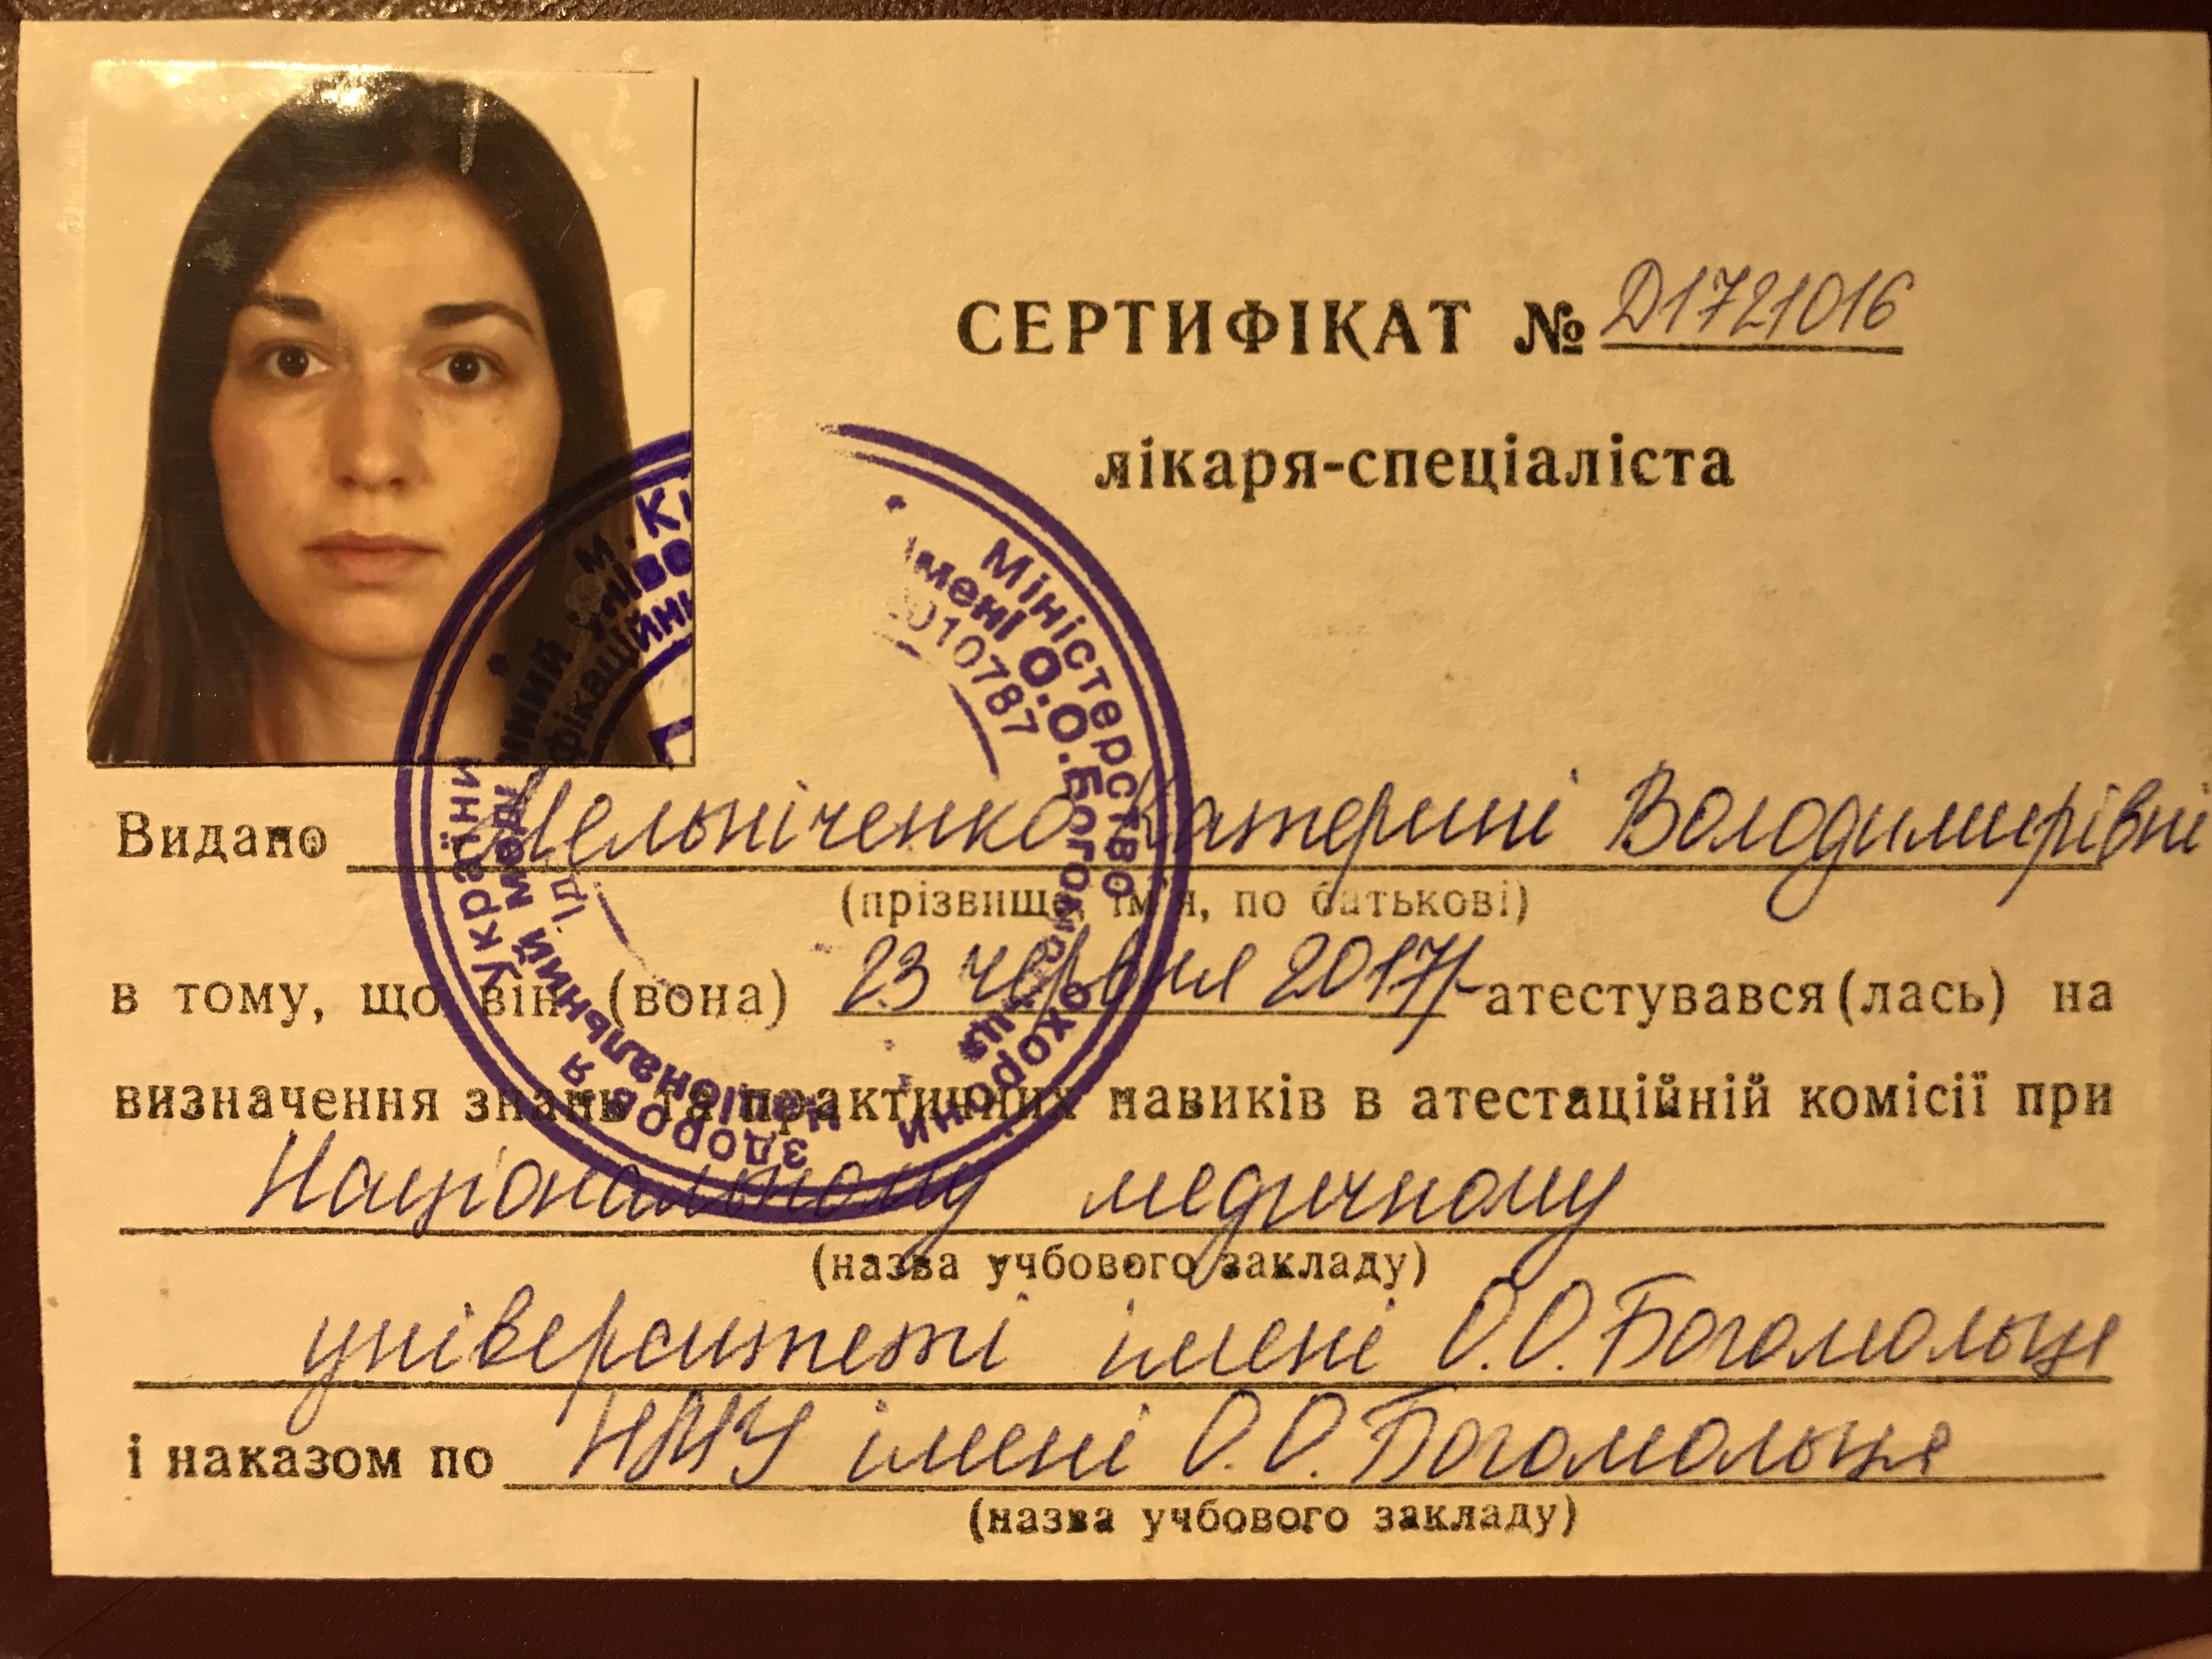 СЕРТИФІКАТ № Д1721016
лікаря-спеціаліста
Видано Мельніченко Катерині Володимирівні
(прізвище, ім'я, по батькові)
в тому, що він (вона) 23 червня 2017 атестувався(лась) на
визначення знань та практичних навиків в атестаційній комісії при
Національному медичному
(назва учбового закладу)
університеті імені О.О.Богомольця
і наказом по НМУ імені О.О.Богомольця
(назва учбового закладу)
Міністерство охорони здоров'я України
Національний імені О.О.Богомольця
010787